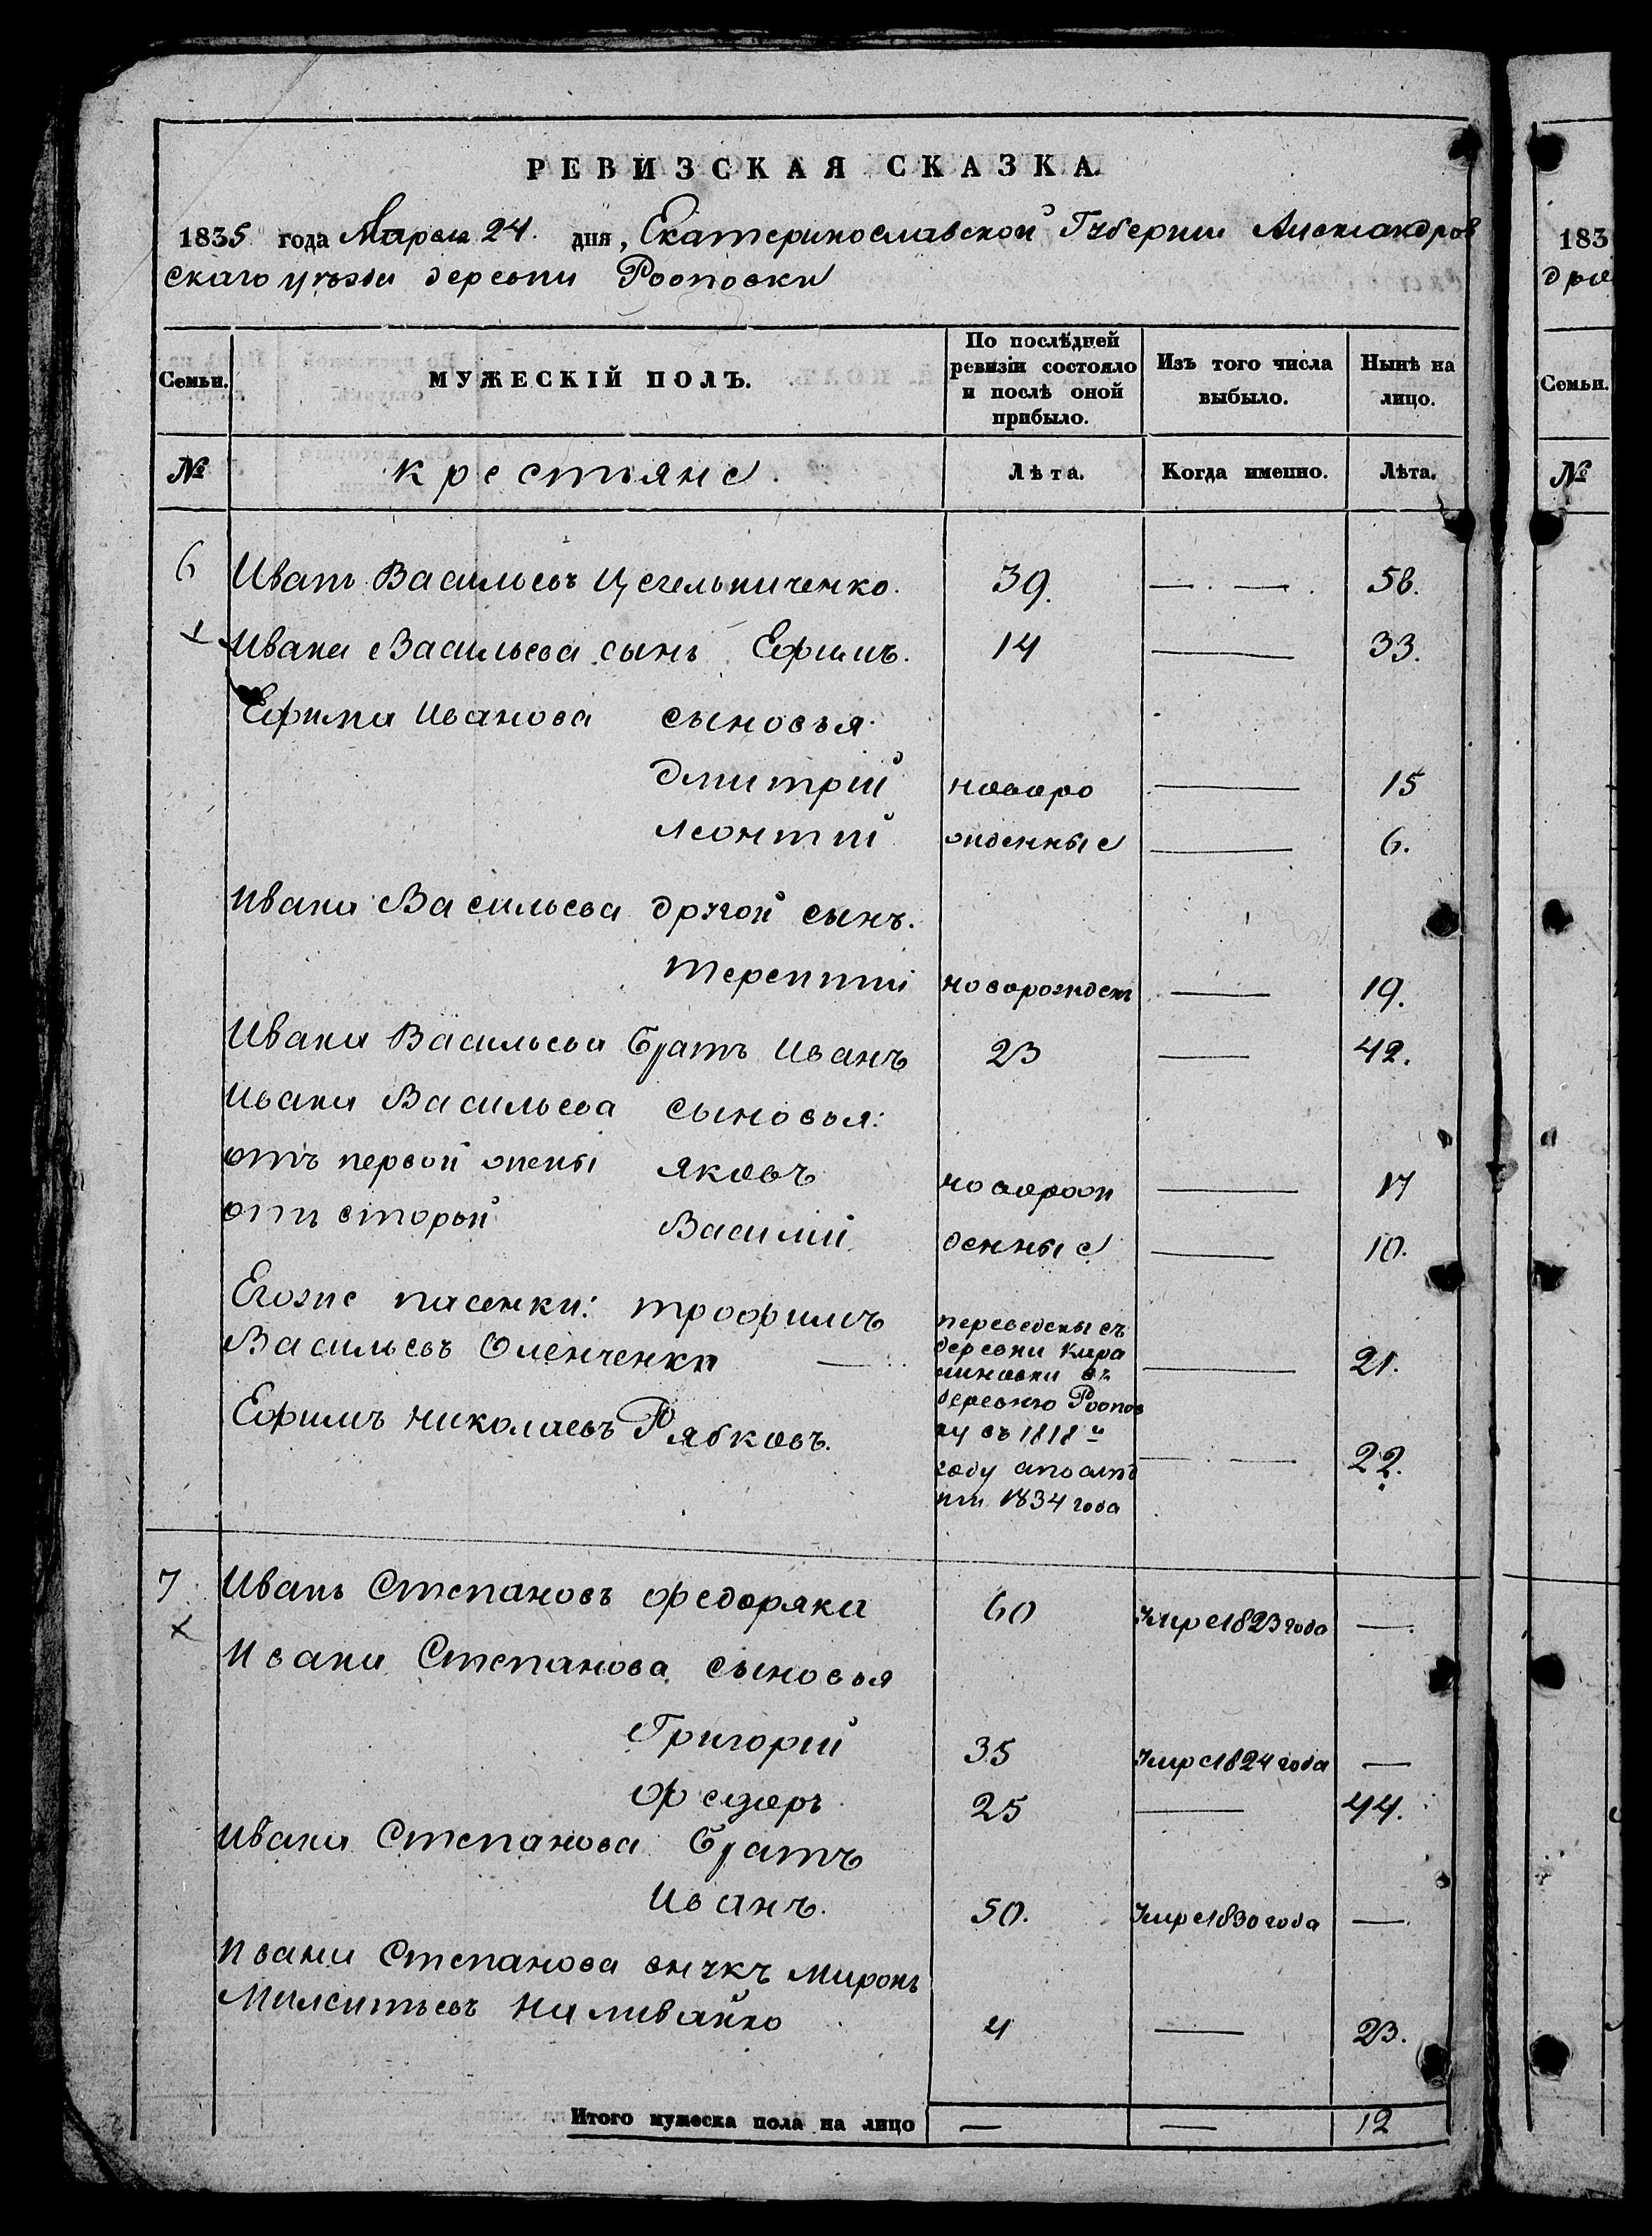 РЕВИЗСКАЯ СКАЗКА.
1835 года Марта 24. дня, Екатеринославской Губернии Александров
скаго уѣзда деревни Рооповки
Семьи. МУЖЕСКІЙ ПОЛЪ. По послѣдней ревизіи состояло и послѣ оной прибыло. Изъ того числа выбыло. Нынѣ на лицо.
№ крестьяне. Лѣта. Когда именно. Лѣта.
6 Иванъ Васильевъ Цегельниченко. 39. — . — . 58.
Ивана Васильева сынъ Ефимъ. 14 — 33.
Ефима Иванова сыновья:
Дмитрій новоро — 15
Леонтій жденные — 6.
Ивана Васильева другой сынъ.
Терентій новорожден — 19.
Ивана Васильева братъ Иванъ 23 — 42.
Ивана Васильева сыновья:
отъ первой жены Яковъ новорож — 17
отъ второй Василій денные — 10.
Егоже пасенки: Трофимъ
Васильевъ Оленченко — 21.
переведены съ
деревни
въ
деревню Роопов
ку въ 1818 м
году
1834 года
Ефимъ Николаевъ Рябковъ. — 22.
7. Иванъ Степановъ Федоряка 60 Умре 1823 года —
Ивана Степанова сыновья
Григорій 35 Умре 1824 года —
Федоръ 25 — 44.
Ивана Степанова братъ
Иванъ. 50. Умре 1830 года —
Ивана Степанова внукъ Миронъ
Наливайко 4 — 23.
Итого мужеска пола на лицо — — 12
183
дре
Семьи.
№